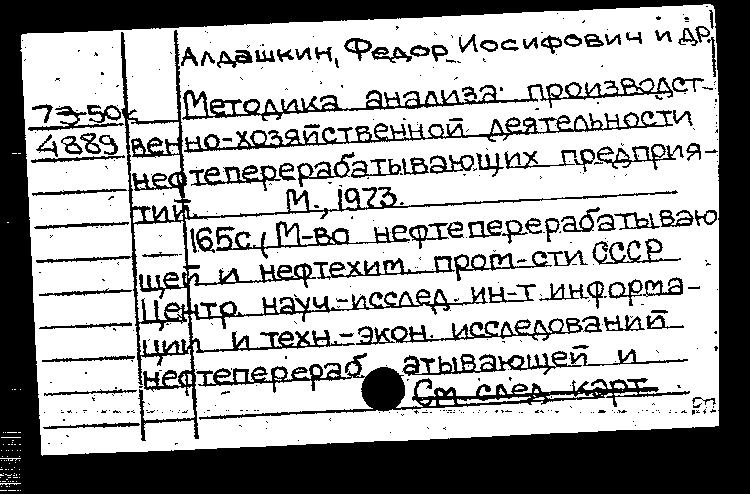 Алдашкин, Федор Иосифович и др.
73-50к
4889
Методика анализа производст-
венно-хозяйственной деятельности
нефтеперерабатывающих предприя-
тий. М., 1973.
165с. (М-во нефтеперерабатываю
щей и нефтехим. пром-сти СССР
Центр. науч.-исслед. ин-т информа-
ции и техн.-экон. исследований
нефтеперераб атывающей и
См. след. карт.